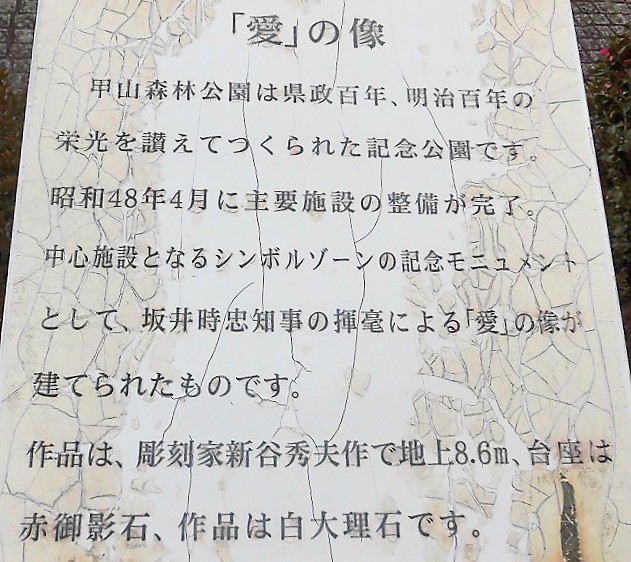 「愛」の像
甲山森林公園は県政百年、明治百年の
栄光を讃えてつくられた記念公園です。
昭和48年4月に主要施設の整備が完了。
中心施設となるシンボルゾーンの記念モニュメント
として、坂井時忠知事の揮毫による「愛」の像が
建てられたものです。
作品は、彫刻家新谷秀夫作で地上8.6m、台座は
赤御影石、作品は白大理石です。